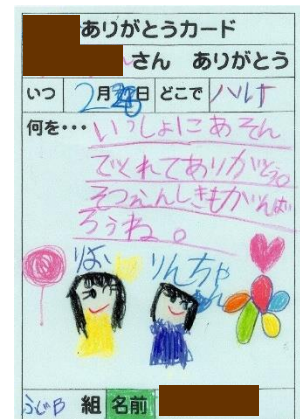 ありがとうカード
さん ありがとう
いつ 2月 日 どこで ハルナ
何を・・・いっしょにあそん
でくれてありがとう。
そつえんしきもがんば
ろうね。
りんちゃん
ふじB 組 名前